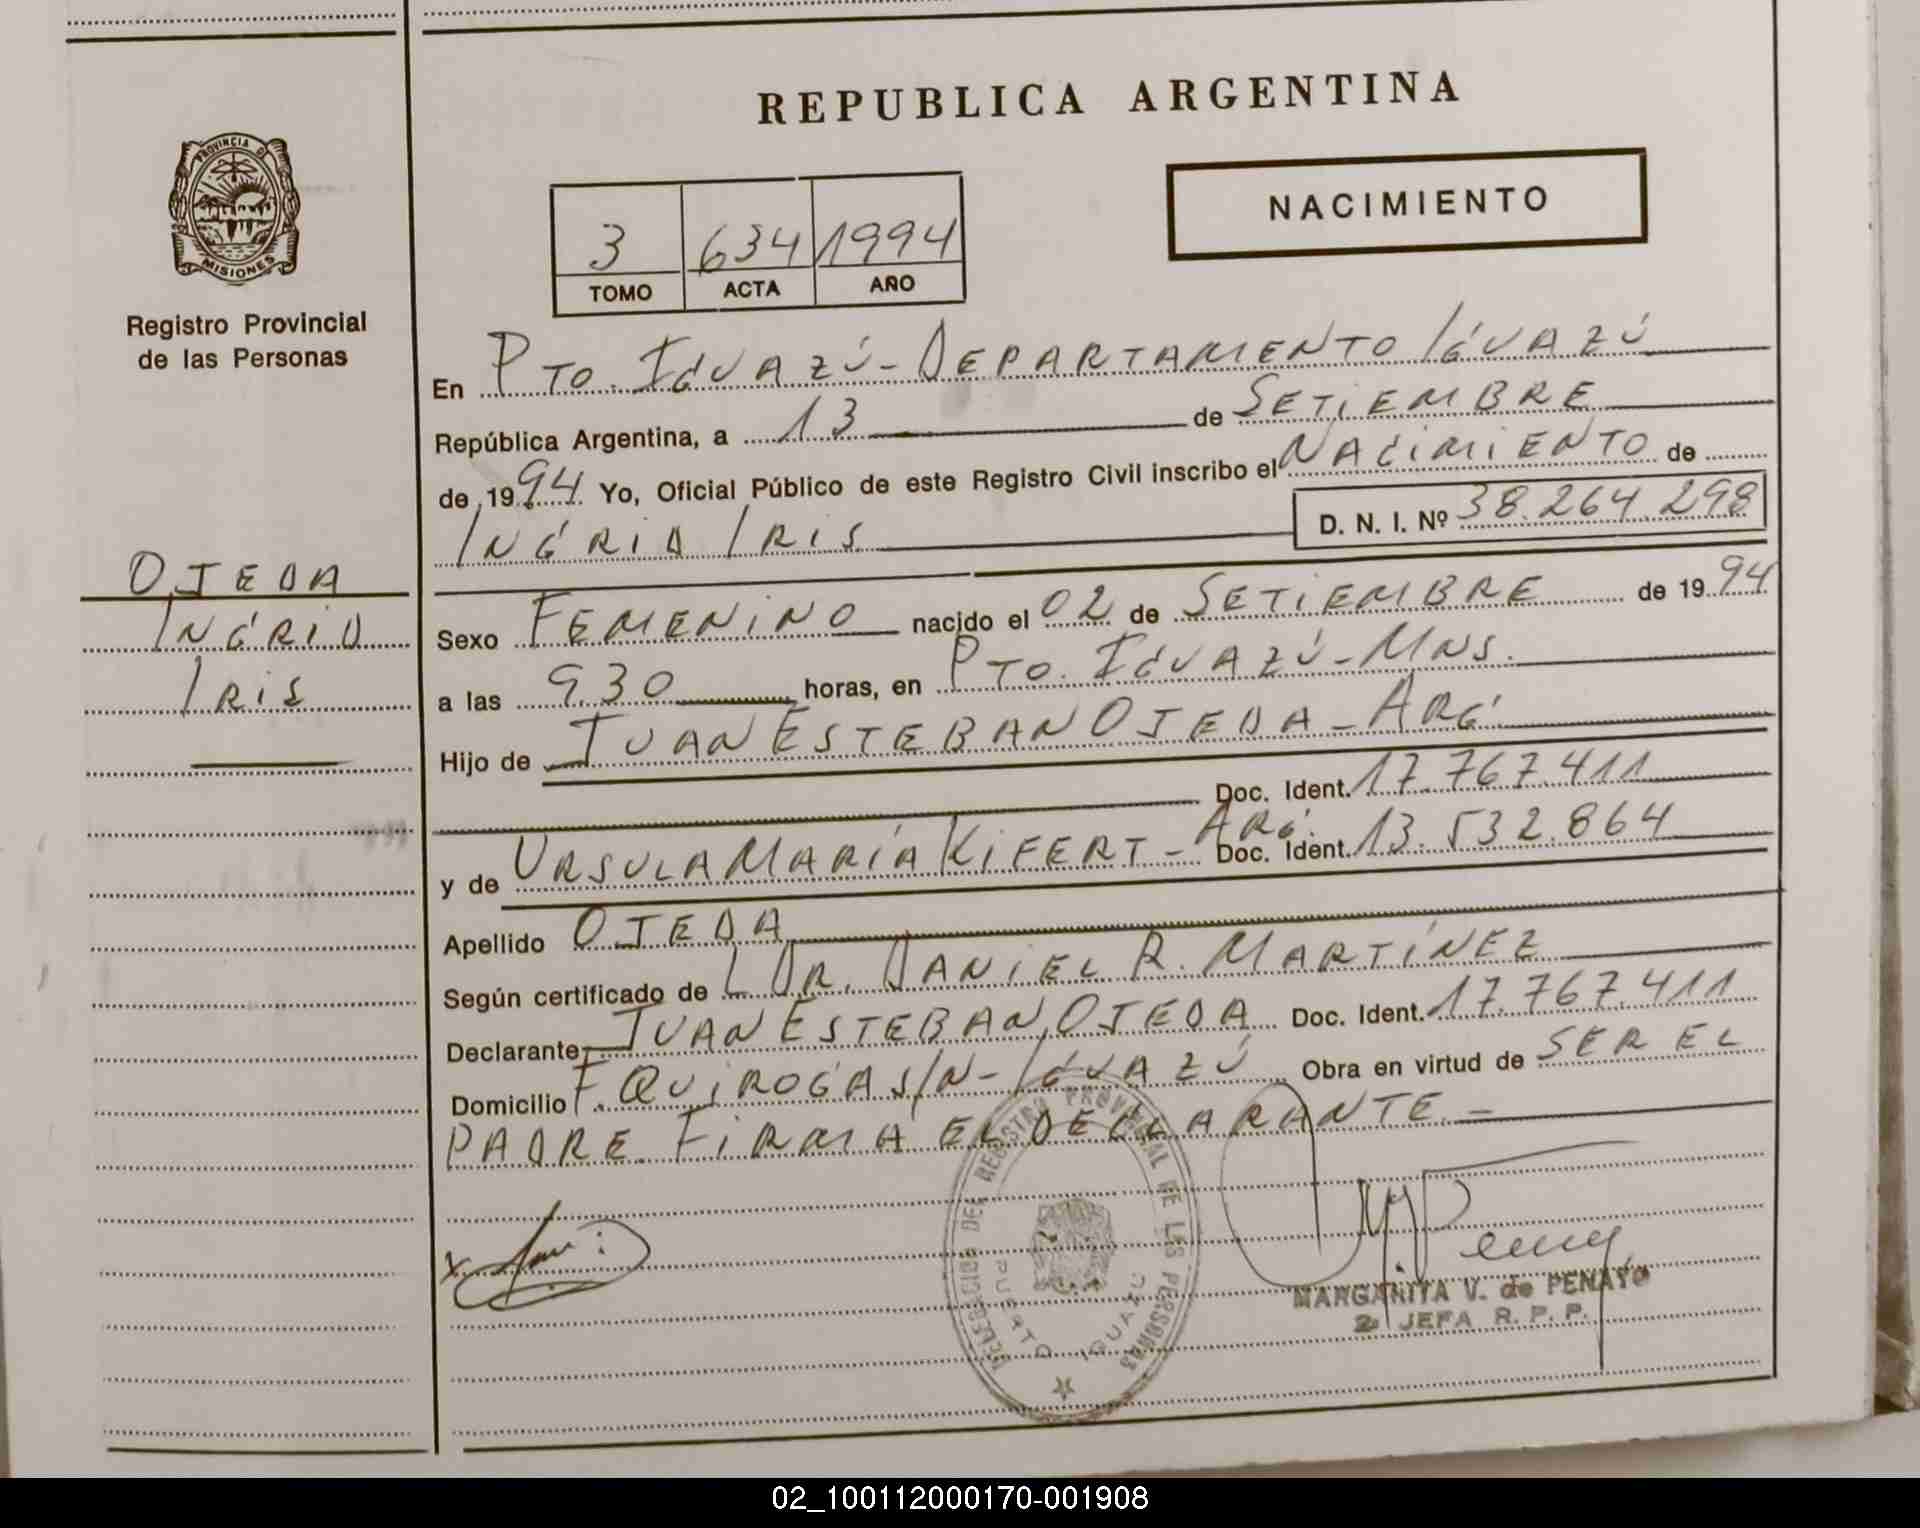 REPUBLICA ARGENTINA
PROVINCIA DE
MISIONES
Registro Provincial
de las Personas
OJEDA
INGRID
IRIS
3 634 1994
TOMO ACTA AÑO
NACIMIENTO
En PTO. IGUAZÚ - DEPARTAMENTO IGUAZÚ
República Argentina, a 13 de SETIEMBRE
de 1994 Yo, Oficial Público de este Registro Civil inscribo el NACIMIENTO de
INGRID IRIS D. N. I. Nº 38.264.298
Sexo FEMENINO nacido el 02 de SETIEMBRE de 1994
a las 9,30 horas, en PTO. IGUAZÚ - MNS.
Hijo de JUAN ESTEBAN OJEDA - ARG.
Doc. Ident. 17.767.411
y de URSULA MARÍA KIFERT - ARG. Doc. Ident. 13.532.864
Apellido OJEDA
Según certificado de L DR. DANIEL R. MARTÍNEZ
Declarante JUAN ESTEBAN OJEDA Doc. Ident. 17.767.411
Domicilio F. QUIROGA S/N - IGUAZÚ Obra en virtud de SER EL
PADRE. FIRMA EL DECLARANTE. -
DELEGACION DEL REGISTRO PROVINCIAL DE LAS PERSONAS
PUERTO IGUAZU
MARGARITA V. de PENAYO
2º JEFA R. P. P.
02_100112000170-001908